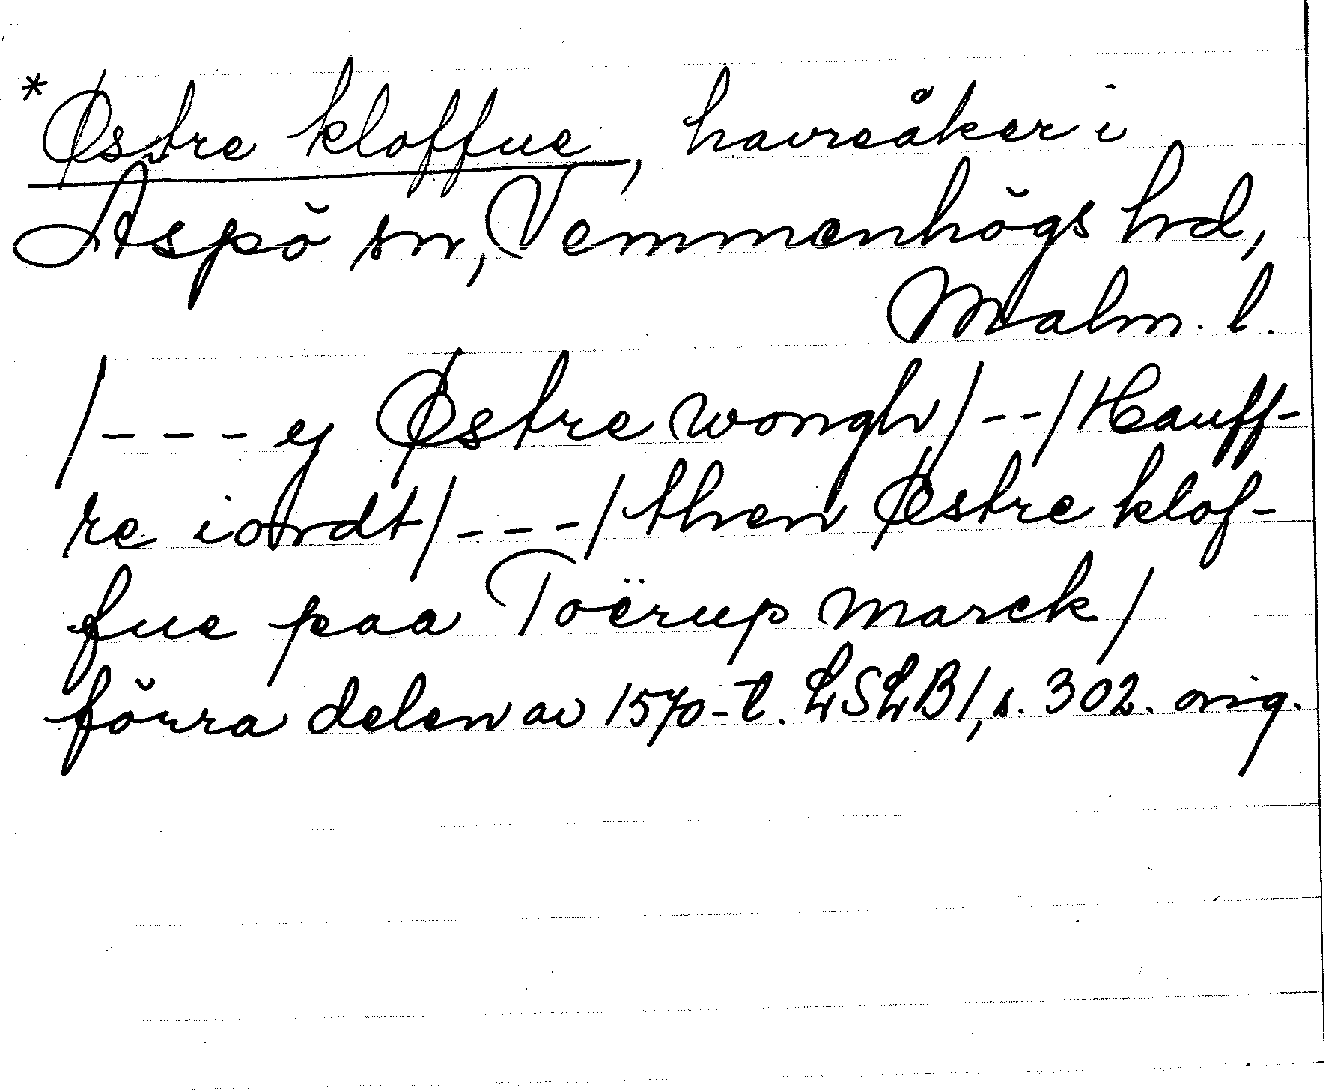 *Østre kloffue, havreåker i
Aspö sn, Vemmenhögs hd,
Malm. l.
/--- ej Østre wongh/--/Hauff-
re iordt/---/then Østre klof-
fue paa Toërup marck/
förra delen av 1570-t. LSLB1, s. 302. orig.